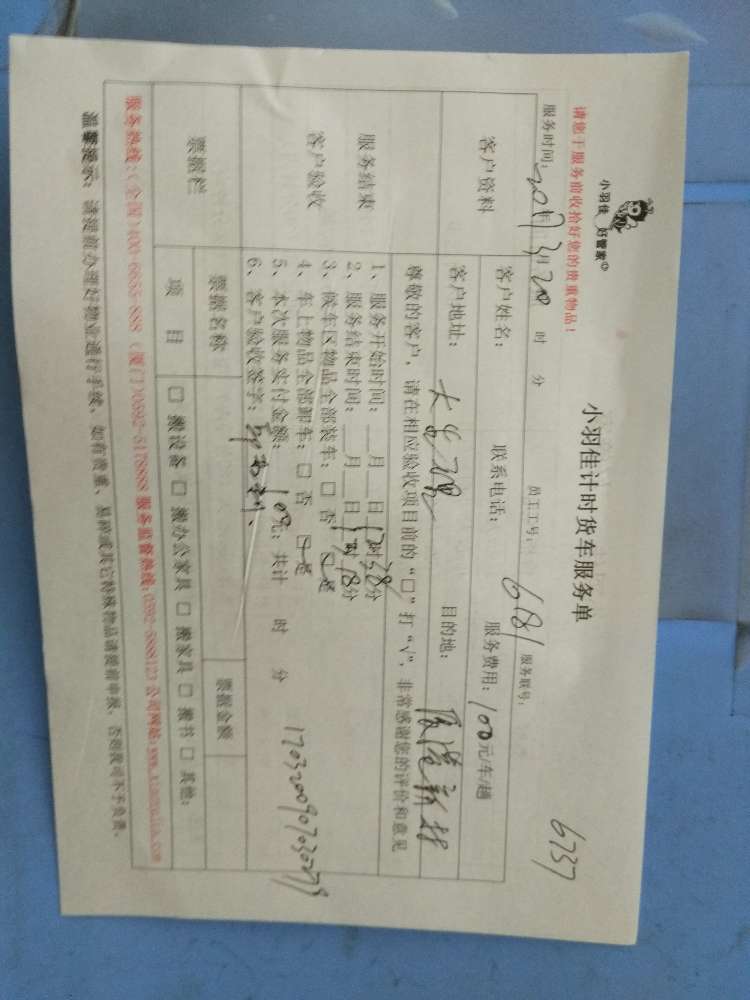 小羽佳 好管家
小羽佳计时货车服务单
6737
请您于服务前收拾好您的贵重物品！
员工工号： 681 服务联号：
服务时间： 2017年3月20 时 分
客户资料
客户姓名： 联系电话： 服务费用：100元/车/趟
客户地址： 目的地：
尊敬的客户，请在相应验收项目前的“□”打“√”，非常感谢您的评价和意见
服务结束
客户验收
1、服务开始时间：__月__日17时38分
2、服务结束时间：__月__日 时18分
3、候车区物品全部装车：□ 否 □是
4、车上物品全部卸车：□ 否 □是
5、本次服务实付金额：100元；共计 时 分
6、客户验收签字：
17032009070302779
票据栏
票据名称 票据金额
项 目 □ 搬设备 □ 搬办公家具 □ 搬家具 □ 搬书 □ 其他：
服务热线：（全国）400-6655-888 （厦门）0592-5178888 服务监督热线：0592-5888123 公司网站：www.xiaoyujia.com
温馨提示：请提前办理好物业通行手续，如有贵重、易碎或其它特殊物品请提前申报，否则我司不予负责。